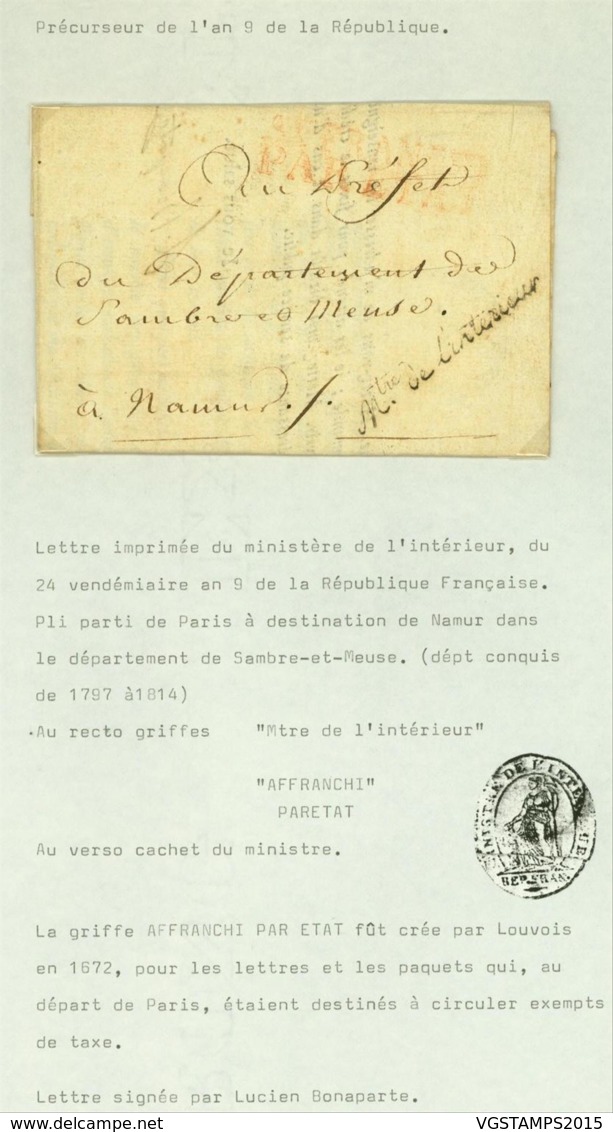 Précurseur de l'an 9 de la République.
PAR
Au Préfet
du Département de
Sambre et Meuse.
à Namur ./.
Mtre. de l'intérieur
Lettre imprimée du ministère de l'intérieur, du
24 vendémiaire an 9 de la République Française.
Pli parti de Paris à destination de Namur dans
le département de Sambre-et-Meuse. (dépt conquis
de 1797 à1814)
.Au recto griffes "Mtre de l'intérieur"
"AFFRANCHI"
PARETAT
Au verso cachet du ministre.
MINISTRE DE L'INTE UR
REP. FRAN.
La griffe AFFRANCHI PAR ETAT fût crée par Louvois
en 1672, pour les lettres et les paquets qui, au
départ de Paris, étaient destinés à circuler exempts
de taxe.
Lettre signée par Lucien Bonaparte.
www.delcampe.net
VGSTAMPS2015